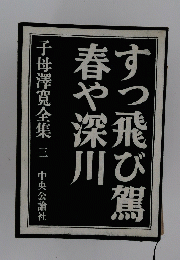 すっ飛び駕
春や深川
子母澤寛全集 三 中央公論社